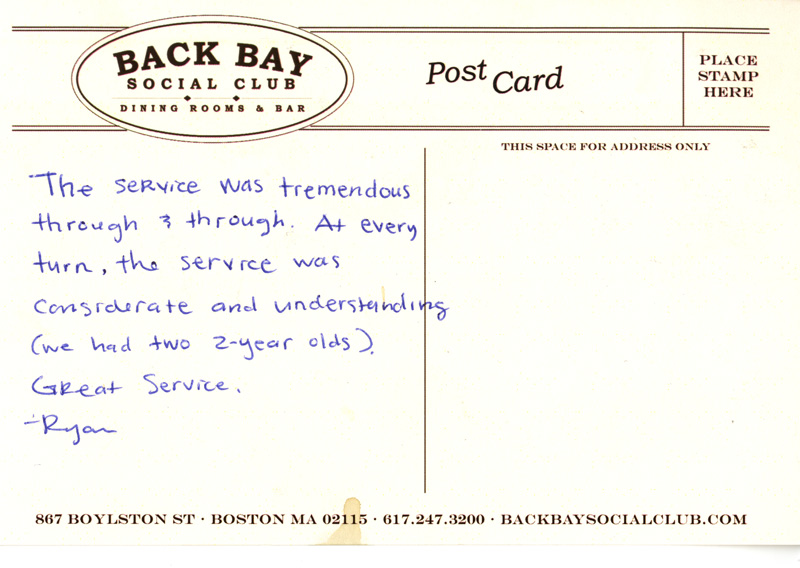 BACK BAY
SOCIAL CLUB
DINING ROOMS & BAR
Post Card
PLACE
STAMP
HERE
THIS SPACE FOR ADDRESS ONLY
The service was tremendous
through & through. At every
turn, the service was
considerate and understanding
(we had two 2-year olds).
Great Service.
-Ryan
867 BOYLSTON ST · BOSTON MA 02115 · 617.247.3200 · BACKBAYSOCIALCLUB.COM